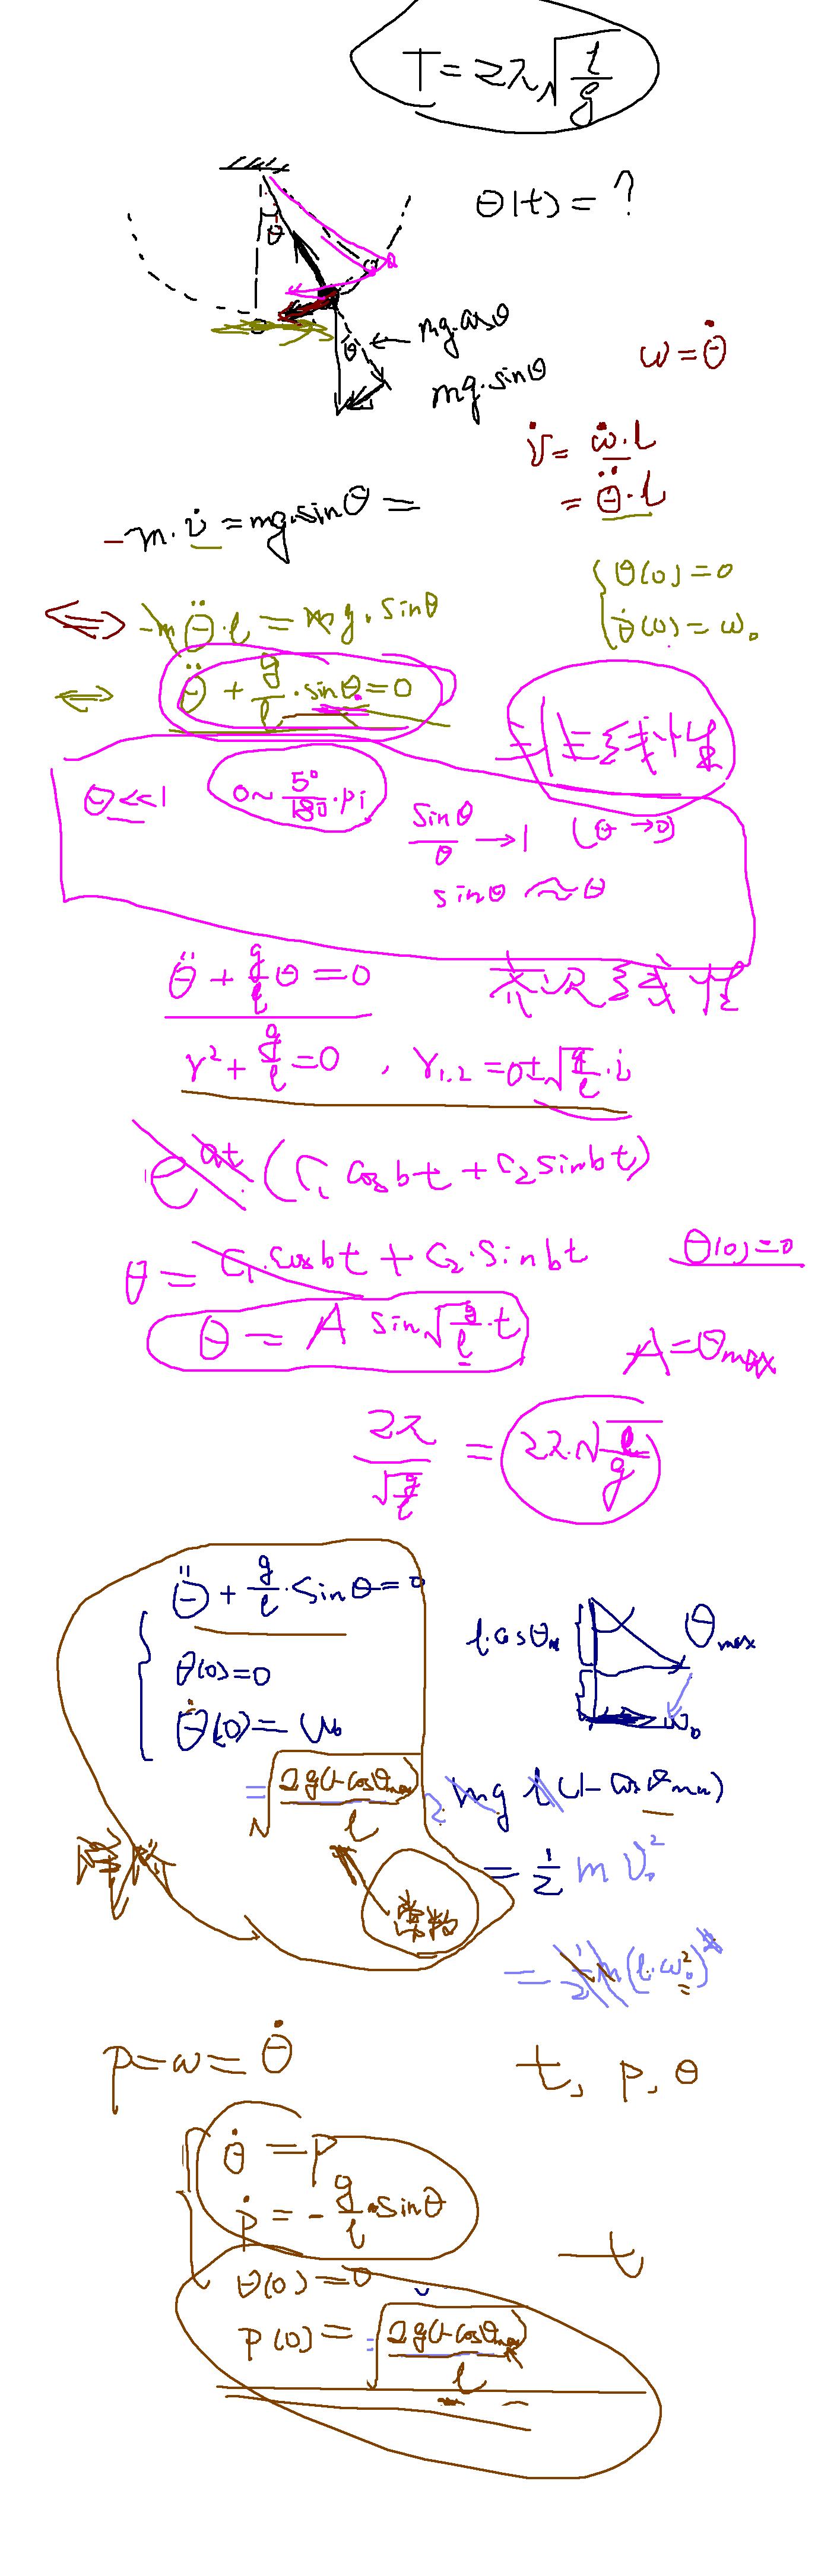 T = 2π√(l/g)
θ(t) = ?
θ
θ
mg·cosθ
mg·sinθ
ω = θ̇
v̇ = ω̇·l
= θ̈·l
-m·v̇ = mg·sinθ =
{ θ(0) = 0
θ̇(0) = ω₀
⇔ -mθ̈·l = mg·sinθ
⇔ θ̈ + g/l·sinθ = 0
二阶非线性
θ<<1 0~5°/180·pi
sinθ/θ → 1 (θ→0)
sinθ ≈ θ
θ̈ + g/l θ = 0
齐次线性
r² + g/l = 0 , r₁,₂ = 0±√(g/l)·i
e^at (C₁ cosbt + C₂ sinbt)
θ = C₁·cosbt + C₂·sinbt
θ(0)=0
θ = A sin√(g/l)·t
A = θmax
2π/√(g/l) = 2π·√(l/g)
θ̈ + g/l·sinθ = 0
θ(0)=0
θ̇(0) = ω₀
= √(2g(1-cosθmax)/l)
常数
l·cosθm
θmax
ω₀
2·mg l(1-cosθmax)
= 1/2 m v₀²
= 1/2 m(l·ω₀²)
p = ω = θ̇
t, p, θ
{ θ̇ = p
ṗ = -g/l·sinθ
t
θ(0) = 0
p(0) = √(2g(1-cosθmax)/l)